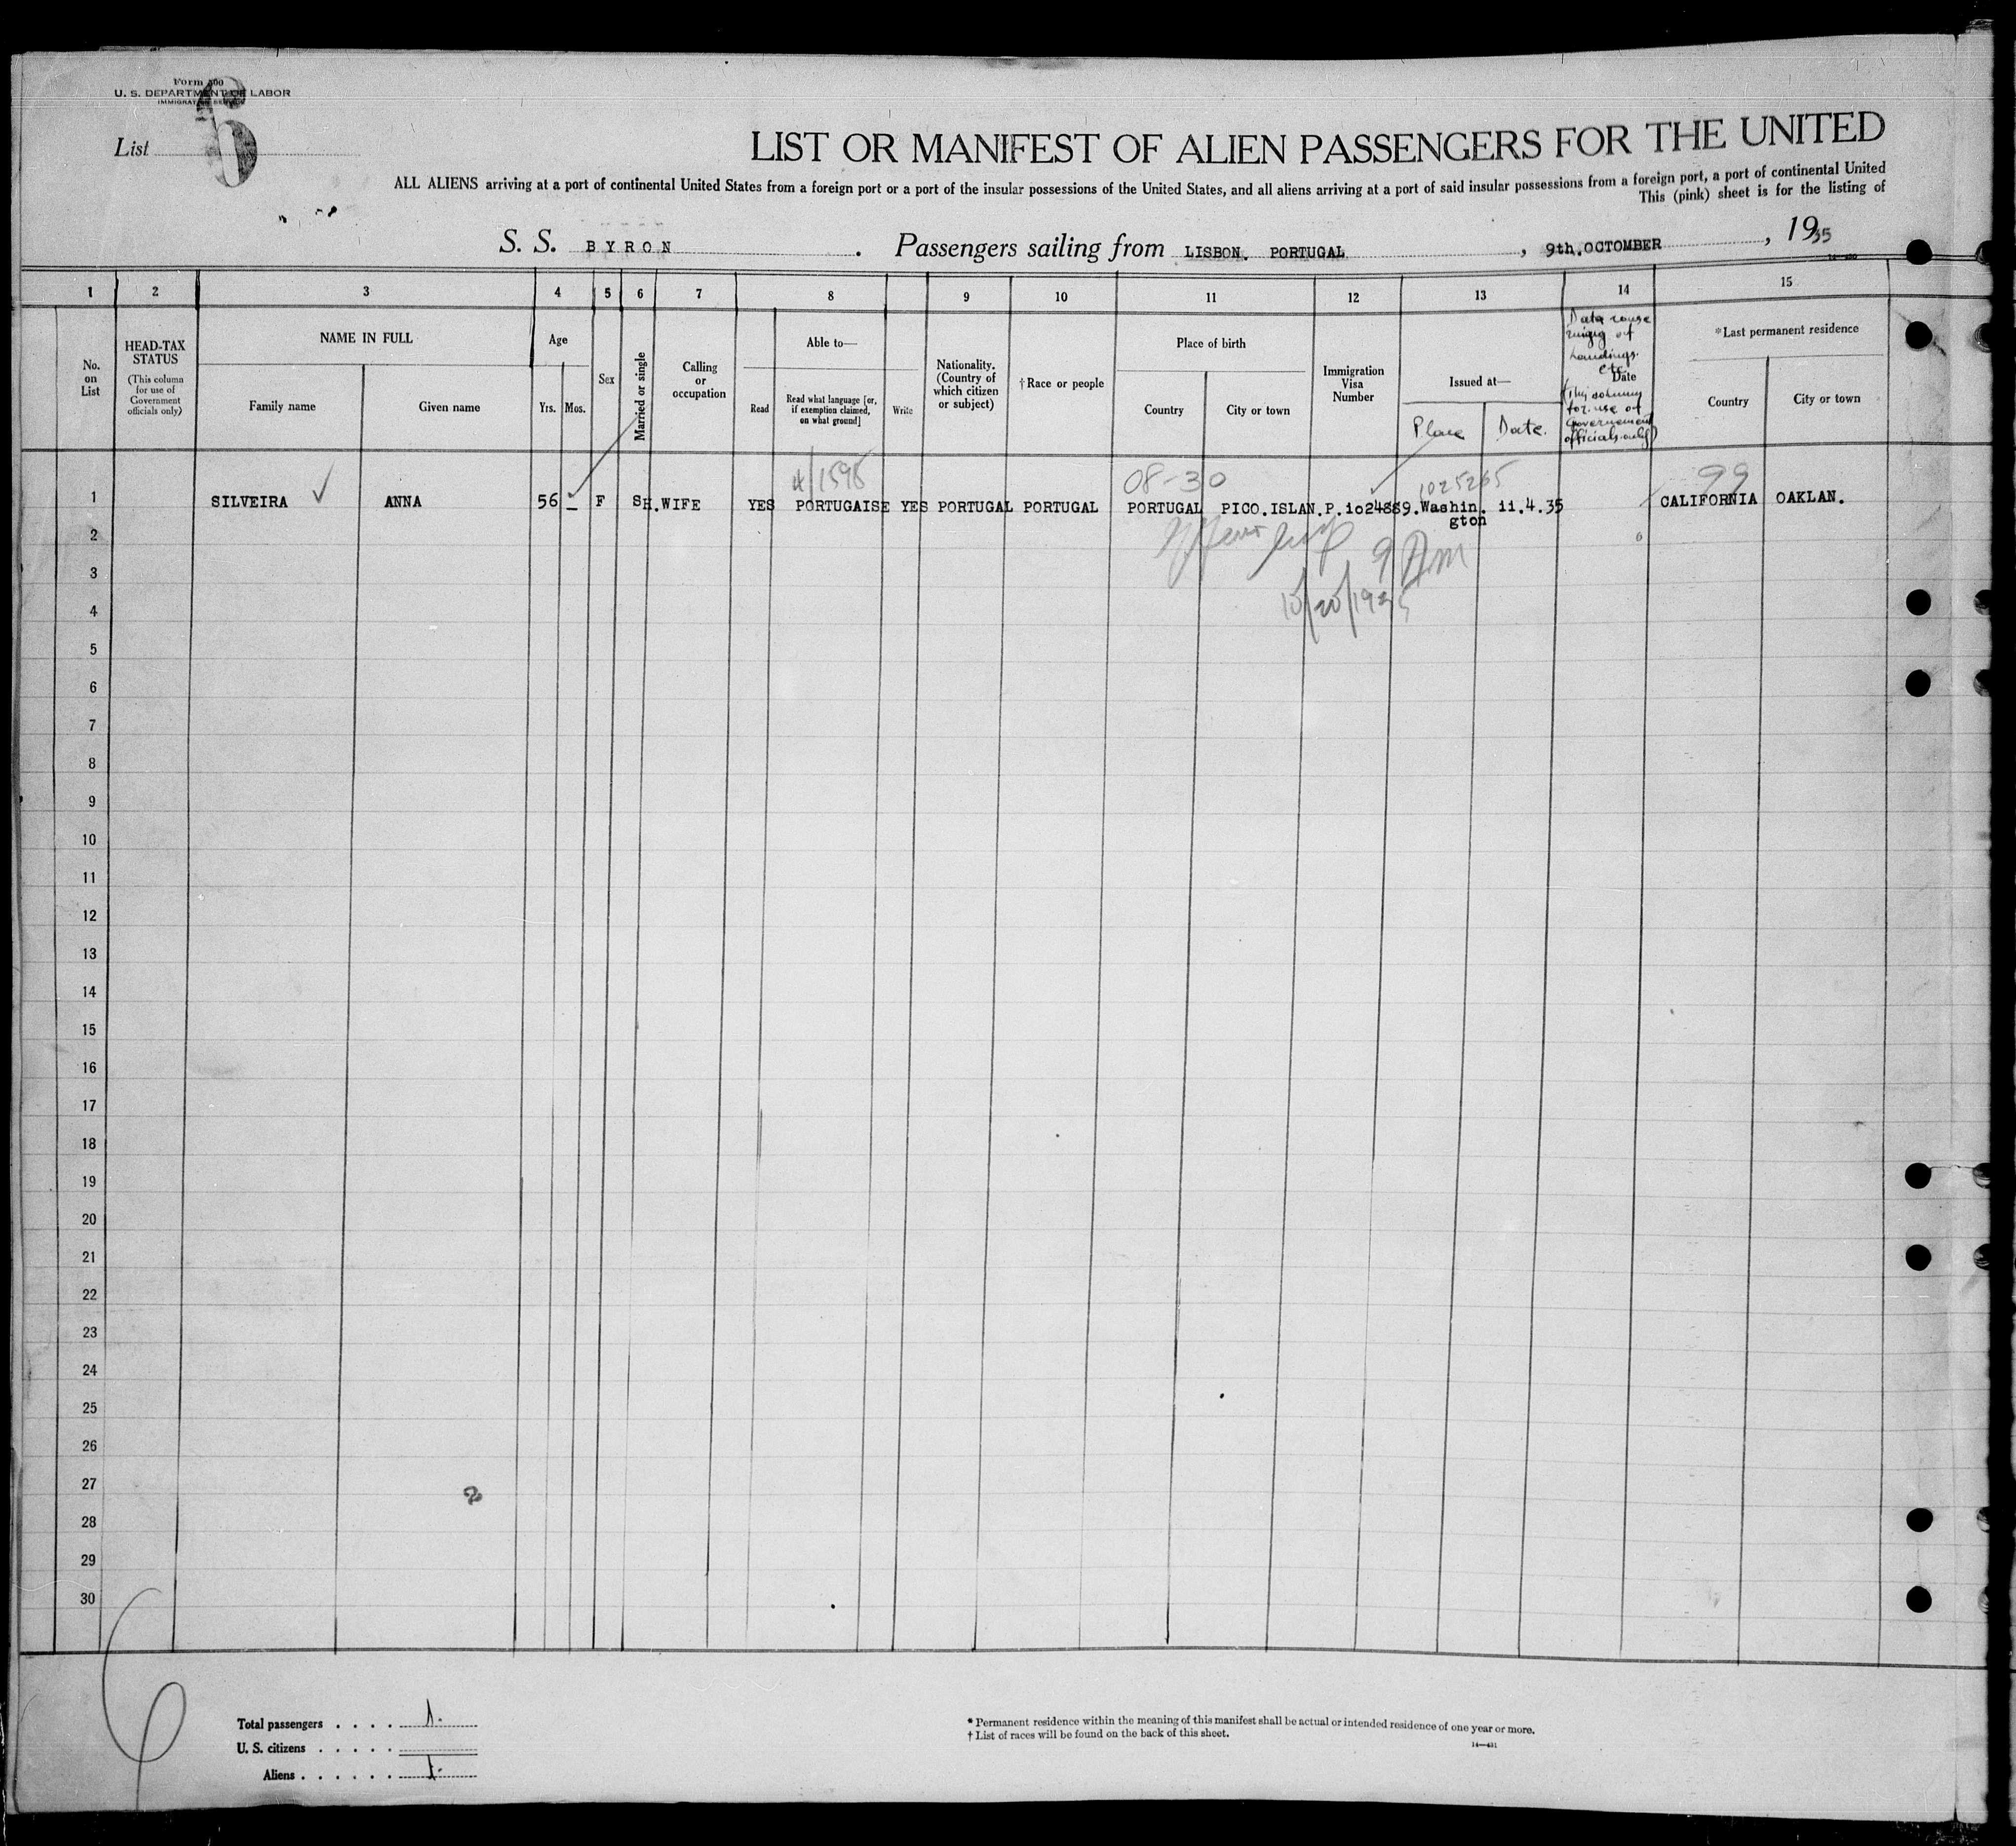 Form 500
U. S. DEPARTMENT OF LABOR
IMMIGRATION SERVICE
List 6
LIST OR MANIFEST OF ALIEN PASSENGERS FOR THE UNITED
ALL ALIENS arriving at a port of continental United States from a foreign port or a port of the insular possessions of the United States, and all aliens arriving at a port of said insular possessions from a foreign port, a port of continental United
This (pink) sheet is for the listing of
S. S. BYRON. Passengers sailing from LISBON. PORTUGAL, 9th.OCTOMBER, 1935
1 2 3 4 5 6 7 8 9 10 11 12 13 14 15
No. on List
HEAD-TAX STATUS
(This column for use of Government officials only)
NAME IN FULL
Family name
Given name
Age
Yrs. Mos.
Sex
Married or single
Calling or occupation
Able to—
Read
Read what language [or, if exemption claimed, on what ground]
Write
Nationality. (Country of which citizen or subject)
†Race or people
Place of birth
Country
City or town
Immigration Visa Number
Issued at—
Place
Date.
Data conse
of
Landings.
etc.
Date
(This column
for use of
Governement
officials only)
*Last permanent residence
Country
City or town
08-30
1025265
99
1 SILVEIRA ANNA 56 – F S H.WIFE YES PORTUGAISE YES PORTUGAL PORTUGAL PORTUGAL PICO.ISLAN. P.1024889. Washin. 11.4.35 CALIFORNIA OAKLAN.
gton
9 Am
10/20/1935
2
3
4
5
6
7
8
9
10
11
12
13
14
15
16
17
18
19
20
21
22
23
24
25
26
27
28
29
30
Total passengers . . . . 1.
U. S. citizens . . . . .
Aliens . . . . . . 1.
* Permanent residence within the meaning of this manifest shall be actual or intended residence of one year or more.
† List of races will be found on the back of this sheet.
14—431